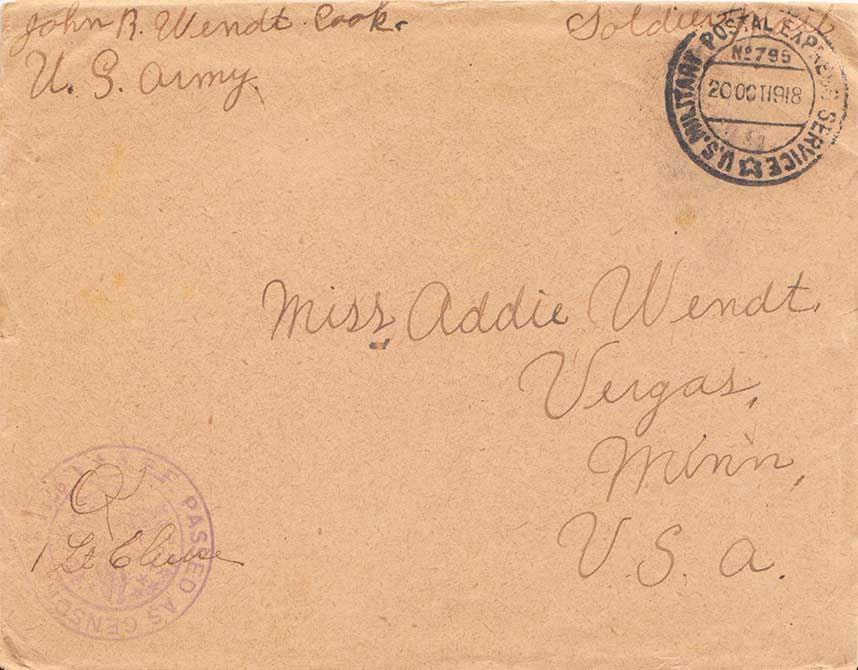 John R. Wendt Cook.
U. S. Army.
Soldier
U.S. MILITARY POSTAL EXPRESS SERVICE
No 795
20 OCT 1918
Miss Addie Wendt.
Vergas,
Minn,
U. S. A.
A.E.F. PASSED AS CENSORED
1 Lt